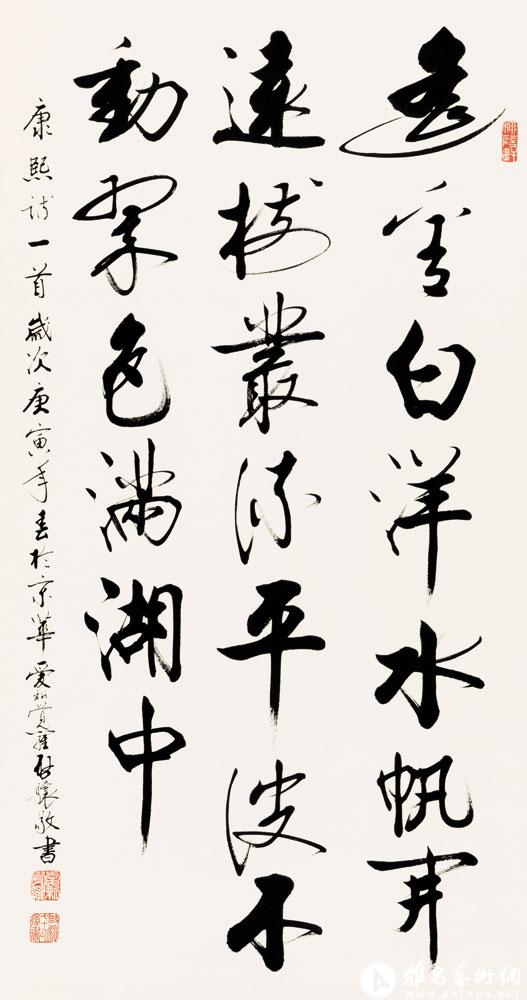 遙看白洋水帆開
遠樹叢流平波不
動翠色滿湖中
康熙詩一首歲次庚寅年春於京華愛新覺羅啟驤敬書
雅昌藝術網
WWW.ARTRON.NET